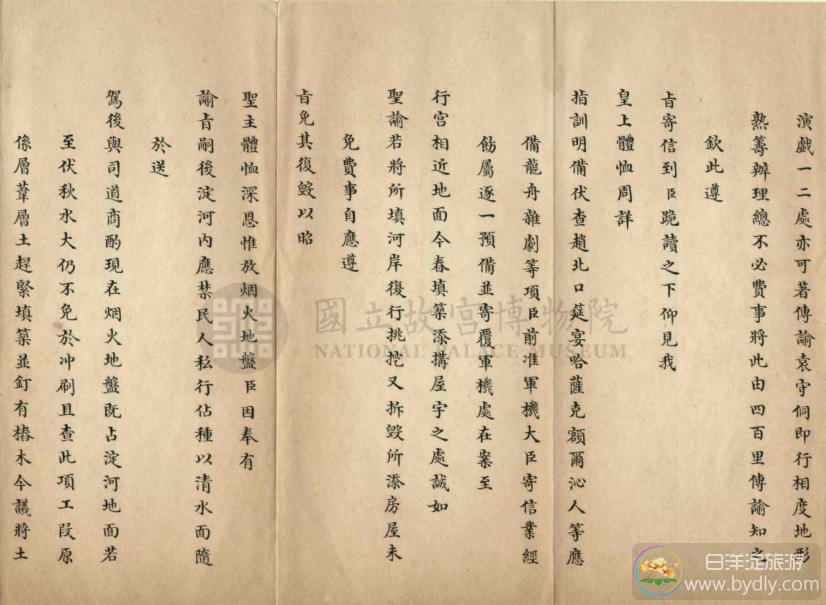 演戲一二處亦可著傳諭袁守侗即行相度地形
熟籌辦理總不必費事將此由四百里傳諭知之
欽此遵
旨寄信到臣跪讀之下仰見我
皇上體恤周詳
指訓明備伏查趙北口筵宴哈薩克額爾沁人等應
備龍舟雜劇等項臣前准軍機大臣寄信業經
飭屬逐一預備並寄覆軍機處在案至
行宮相近地面今春填築添搆屋宇之處誠如
聖諭若將所填河岸復行挑挖又拆毀所添房屋未
免費事自應遵
旨免其復毀以昭
聖主體恤深恩惟放烟火地盤臣因奉有
諭旨嗣後淀河內應禁民人私行佔種以清水面隨
於送
駕後與司道商酌現在烟火地盤既占淀河地面若
至伏秋水大仍不免於冲刷且查此項工段原
係層葦層土趕緊填築並釘有樁木今議將土
國立故宮博物院
NATIONAL PALACE MUSEUM
白洋淀旅游
www.bydly.com